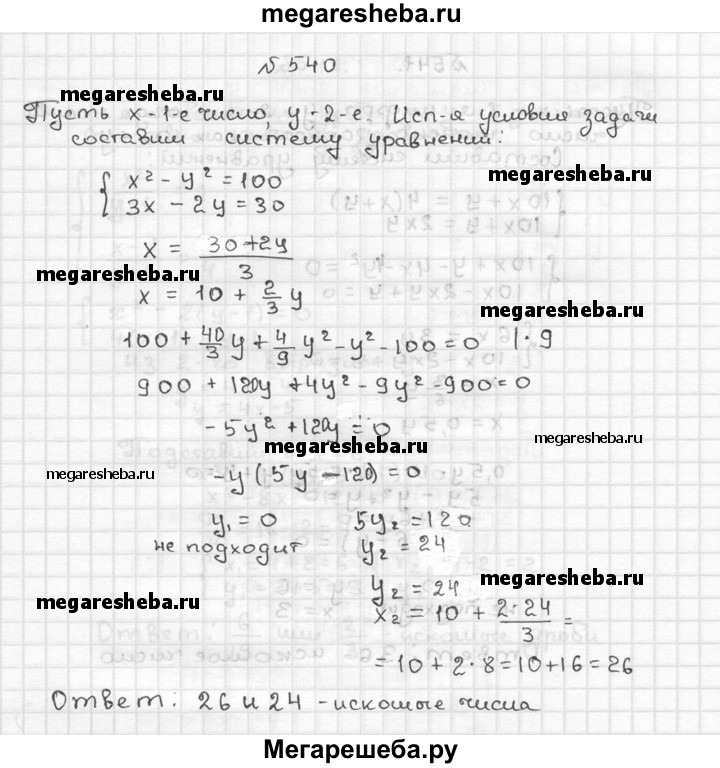 megaresheba.ru
№ 540
megaresheba.ru
Пусть x-1-е число, y-2-е. Исп-я условия задачи
составим систему уравнений:
{ x² - y² = 100
3x - 2y = 30
megaresheba.ru
x = (30+2y)/3
megaresheba.ru
x = 10 + 2/3 y
megaresheba.ru
100 + 40/3 y + 4/9 y² - y² - 100 = 0 | · 9
900 + 120y + 4y² - 9y² - 900 = 0
-5y² + 120y = 0
megaresheba.ru
megaresheba.ru
megaresheba.ru
-y (5y - 120) = 0
y₁ = 0 5y₂ = 120
не подходит y₂ = 24
y₂ = 24
megaresheba.ru
megaresheba.ru
x₂ = 10 + (2·24)/3 =
= 10 + 2·8 = 10+16 = 26
Ответ: 26 и 24 - искомые числа
Мегарешеба.ру